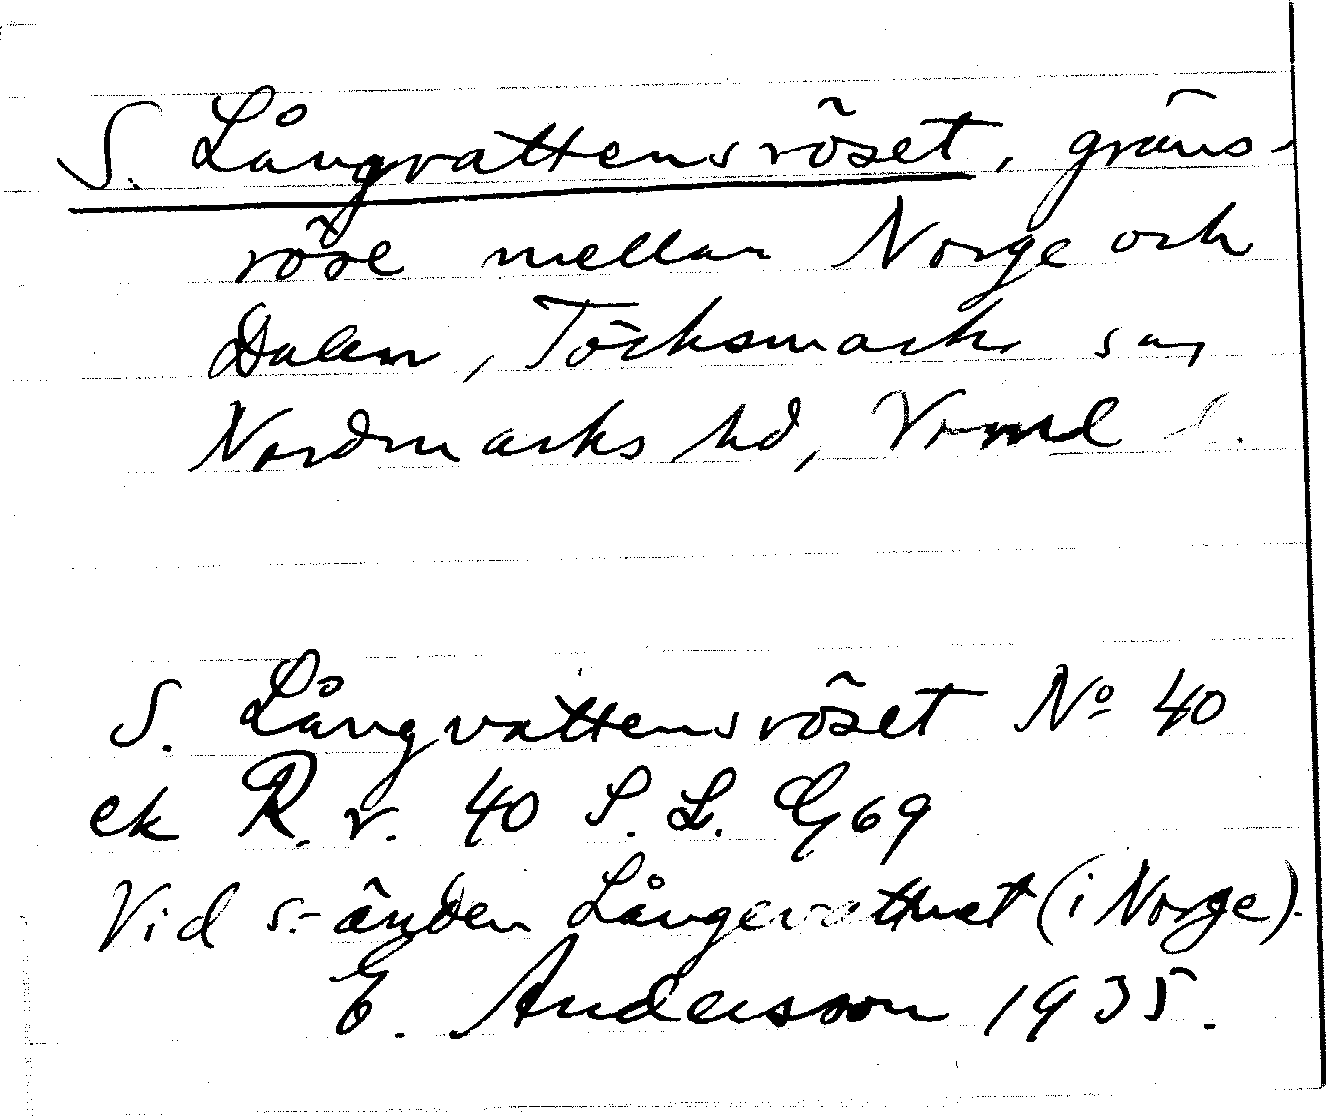 S. Långvattensröset, gräns-
röse mellan Norge och
Dalen, Töcksmarks sn,
Nordmarks hd, Vrmld l.
S. Långvattensröset Nº 40
ek R. r. 40 S. L. G69
Vid s.-änden Långevattnet (i Norge).
E. Andersson 1935.